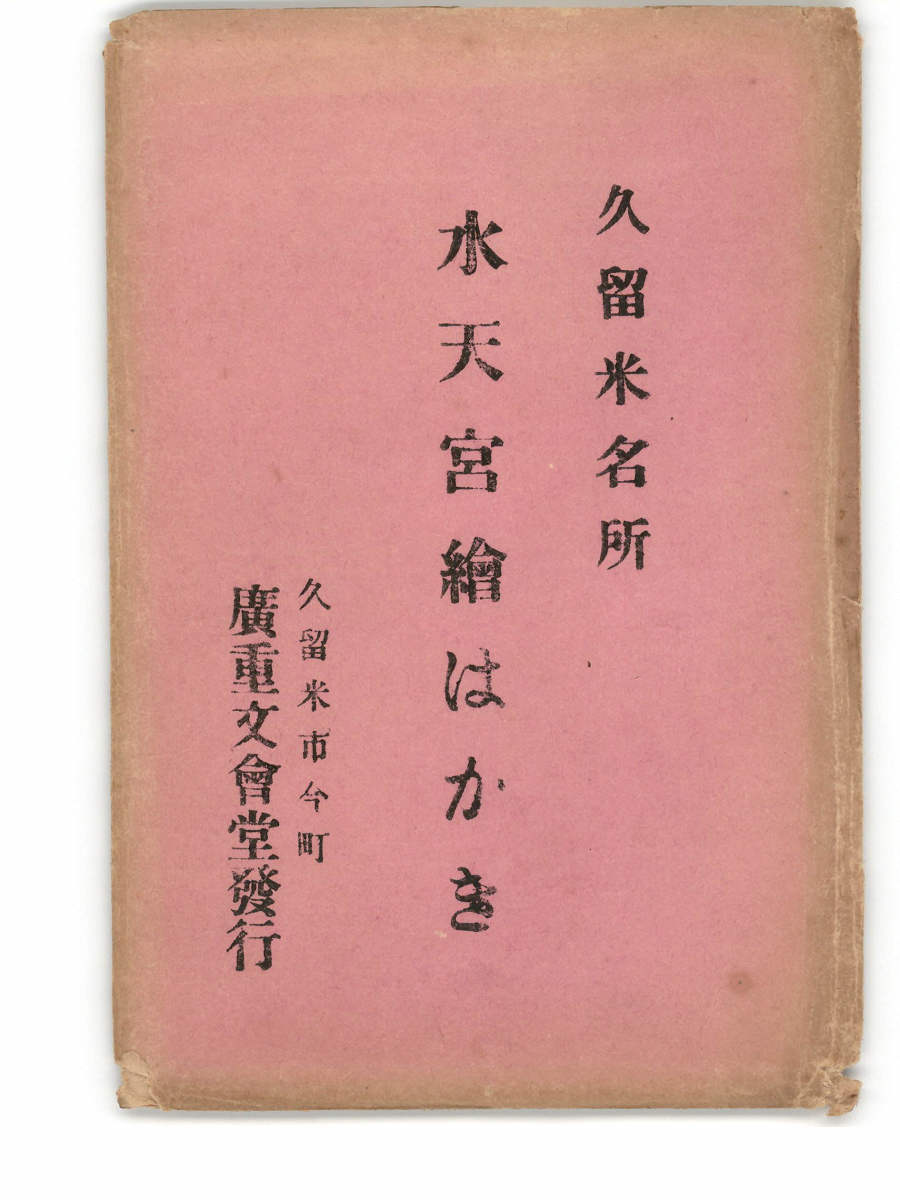 久留米名所
水天宮繪はかき
久留米市今町
廣重文會堂發行